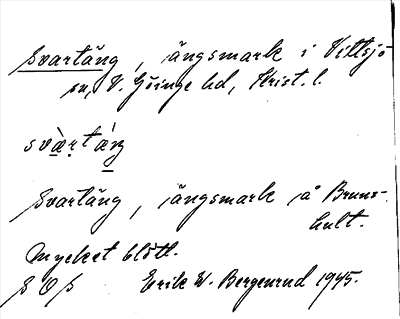 Svartäng, ängsmark i Vittsjö
sn, V. Göinge hd, Krist. l.
svὰ̱ṛtá̱ŋ
Svartäng, ängsmark på Bruns-
hult.
Mycket blött.
S O S Erik W. Bergenrud 1945.